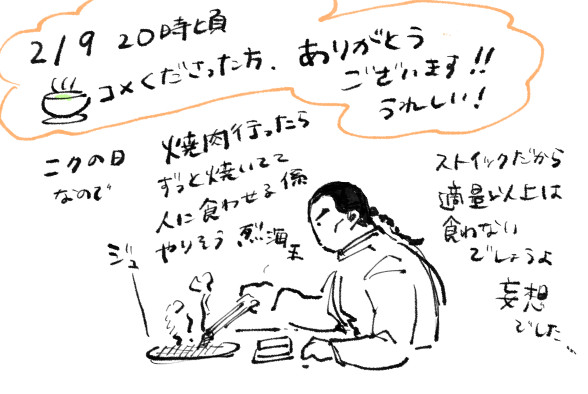 2/9 20時頃
コメくださった方、ありがとう
ございます!!
うれしい!
ニクの日
なので
焼肉行ったら
ずっと焼いてて
人に食わせる係
やりそう 烈海王
ジュー
ストイックだから
適量以上は
食わない
でしょうよ
妄想
でした…